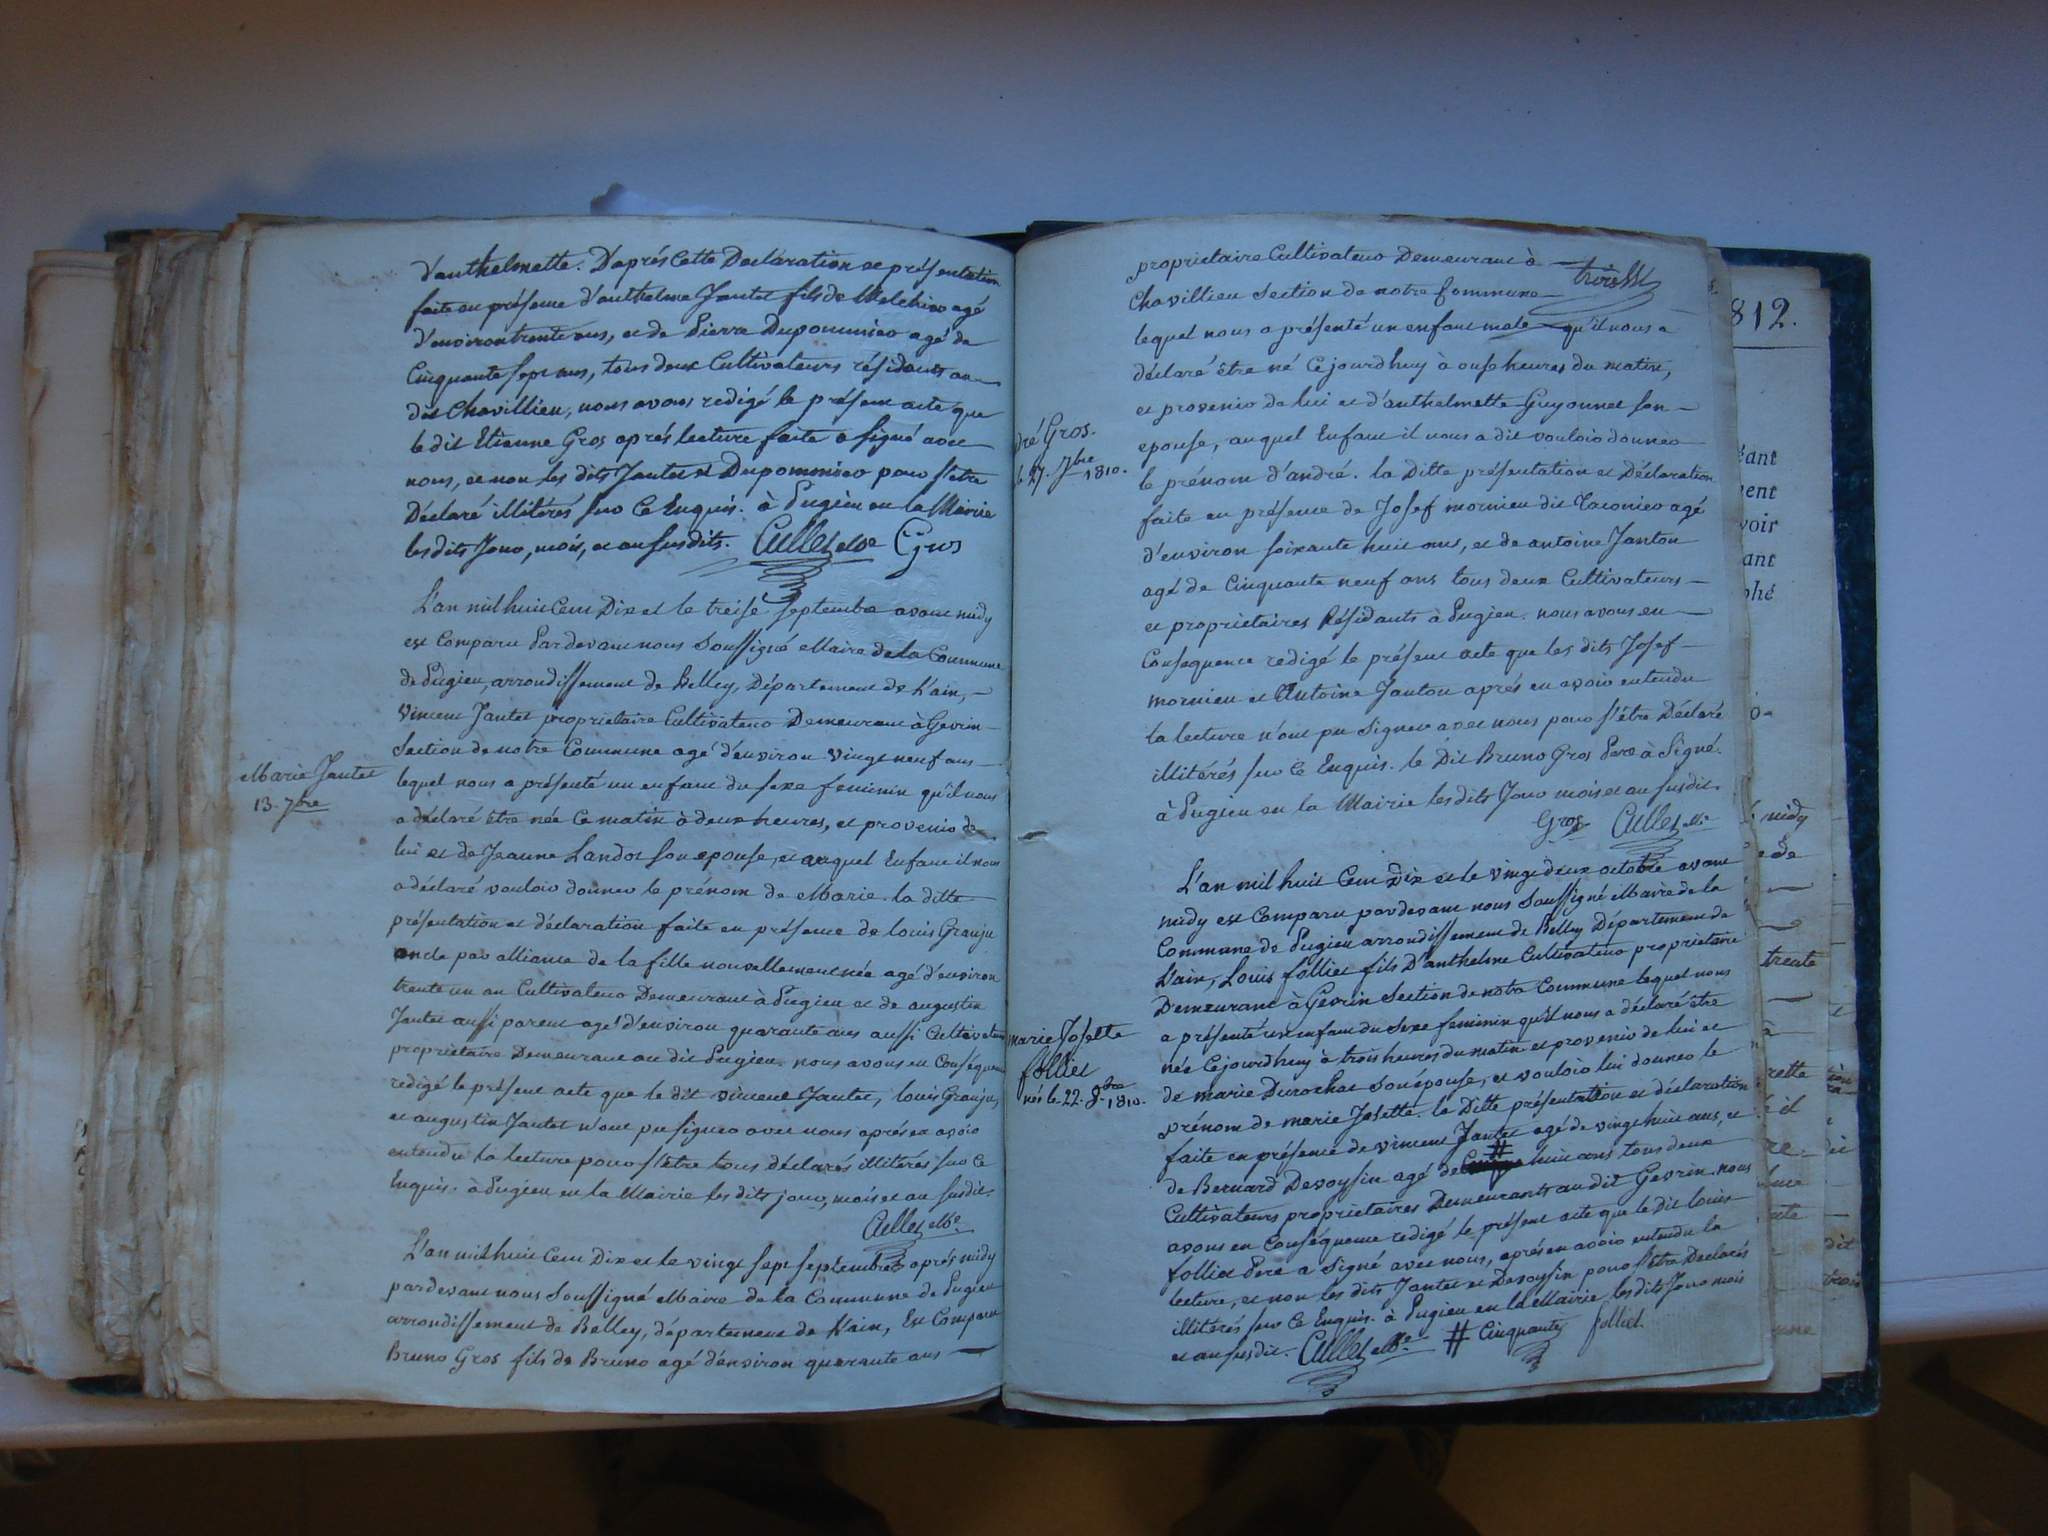 d'anthelmette. D'après Cette Declaration et présentation
faite en présence d'anthelme Jantet fils de Melchior agé
d'environ trente ans, et de Pierre Dupommier agé de
Cinquante sept ans, tous deux Cultivateurs résidants au
dit Chavillieu, nous avons redigé le présent acte que
le dit Etienne Gros après lecture faite a signé avec
nous, et non les dits Jantet et Dupommier pour s'etre
Déclaré illitérés sur Ce Enquis. à Pugieu en la Mairie
les dits Jour, mois, et an susdits. Cullet Mre Gros
L'an mil huit Cent Dix et le treise septembre avant midy
est Comparu Pardevant nous soussigné Maire de la Commune
de Pugieu, arrondissement de Belley, Département de L'ain,
Vincent Jantet proprietaire Cultivateur Demeurant à Gevrin
Section de notre Commune agé d'environ vingt neuf ans
Marie Jantet
13. 7bre
lequel nous a présenté un enfant du sexe feminin qu'il nous
a déclaré être née Ce matin à deux heures, et provenir de
lui et de Jeanne Landot son epouse, et auquel Enfant il nous
a déclaré vouloir donner le prénom de Marie. la ditte
présentation et déclaration faite en présence de louis Granju
oncle par alliance de la fille nouvellement née agé d'environ
trente un an Cultivateur Demeurant à Pugieu et de augustin
Jantet aussi parent agé d'environ quarante ans aussi Cultivateur
proprietaire Demeurant au dit Pugieu. nous avons en Conséquence
redigé le présent acte que le dit vincent Jantet, louis Granju,
et augustin Jantet n'ont pu signer avec nous après en avoir
entendu la lecture pour s'être tous déclarés illitérés sur Ce
Enquis. à Pugieu en la Mairie les dits jour, mois et an susdit.
Cullet Mre
L'an mil huit Cent Dix et le vingt sept septembre après midy
pardevant nous soussigné Maire de la Commune de Pugieu
arrondissement de Belley, département de L'ain, Est Comparu
Bruno Gros fils de Bruno agé d'environ quarante ans
proprietaire Cultivateur Demeurant à
Chavillieu Section de notre Commune
lequel nous a présenté un enfant male qu'il nous a
déclaré être né Cejourdhuy à onse heures du matin,
et provenir de lui et d'anthelmette Guyonnet son
dré Gros.
le 27. 7bre 1810.
epouse, auquel Enfant il nous a dit vouloir donner
le prénom d'andré. la Ditte présentation et Déclaration
faite en présence de Josef mornieu dit agé
d'environ soixante huit ans, et de antoine Janton
agé de Cinquante neuf ans tous deux Cultivateurs
et proprietaires Résidants à Pugieu. nous avons en
Consequence redigé le présent acte que les dits Josef
mornieu et Antoine Janton après en avoir entendu
la lecture n'ont pu signer avec nous pour s'être Déclaré
illitérés sur Ce Enquis. le Dit Bruno Gros Pere à Signé.
à Pugieu en la Mairie les dits Jour mois et an susdit.
Gros Cullet Mre
L'an mil huit Cent Dix et le vingt deux octobre avant
midy est Comparu pardevant nous soussigné Maire de la
Commune de Pugieu arrondissement de Belley Département de
L'ain, Louis folliet fils D'anthelme Cultivateur proprietaire
Demeurant à Gevrin Section de notre Commune lequel nous
a présenté un enfant du Sexe feminin qu'il nous a déclaré être
marie Josette
folliet
née le 22. 8bre 1810.
née Cejourdhuy à trois heures du matin et provenir de lui et
de marie Durochat Son épouse, et vouloir lui donner le
prénom de marie Josette. la Ditte présentation et déclaration
faite en présence de vincent Jantet agé de vingt huit ans, et
de Bernard Devoysin agé de # huit ans tous deux
Cultivateurs proprietaires Demeurants au dit Gevrin. nous
avons en Conséquence redigé le présent acte que le dit louis
folliet Pere a Signé avec nous, après en avoir entendu la
lecture, et non les dits Jantet et Devoysin pour s'être Déclarés
illitérés sur Ce Enquis. à Pugieu en la Mairie les dits Jour mois
et an susdit. Cullet Mre # Cinquante folliet
812.